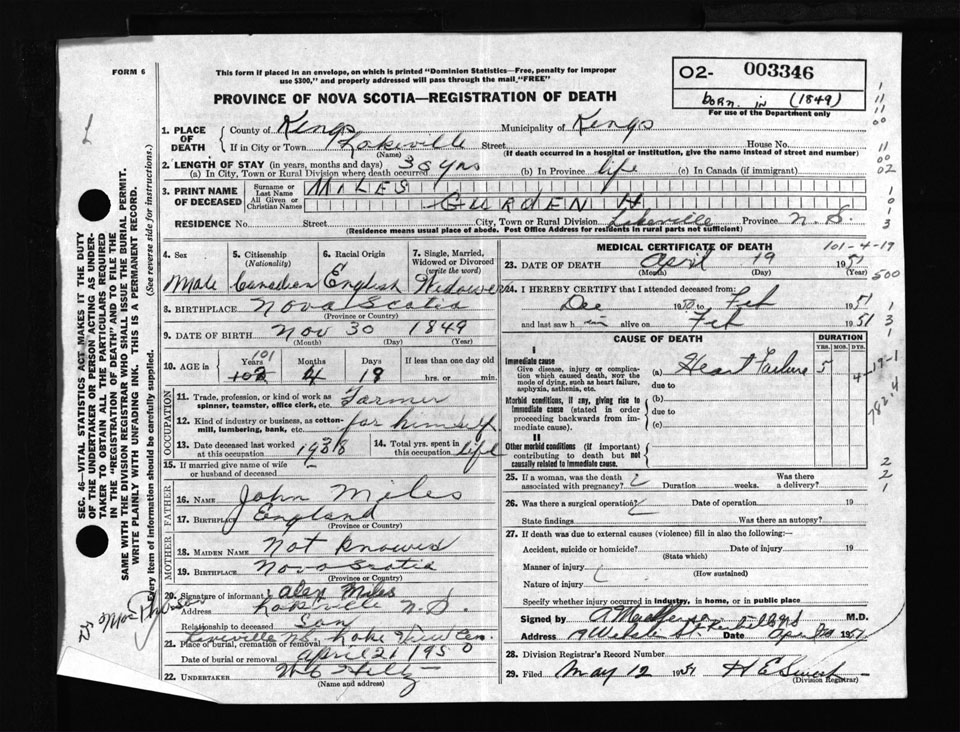 FORM 6
This form if placed in an envelope, on which is printed "Dominion Statistics—Free, penalty for improper
use $300," and properly addressed will pass through the mail "FREE"
PROVINCE OF NOVA SCOTIA—REGISTRATION OF DEATH
O2- 003346
born in (1849)
For use of the Department only
1. PLACE OF DEATH
County of Kings Municipality of Kings
If in City or Town Lakeville Street House No.
(Name) (If death occurred in a hospital or institution, give the name instead of street and number)
2. LENGTH OF STAY (in years, months and days)
(a) In City, Town or Rural Division where death occurred 30 yrs (b) In Province life (c) In Canada (if immigrant)
3. PRINT NAME OF DECEASED
Surname or Last Name MILES
All Given or Christian Names GURDEN H
RESIDENCE No. Street City, Town or Rural Division Lakeville Province N.S.
(Residence means usual place of abode. Post Office Address for residents in rural parts not sufficient)
4. Sex 5. Citizenship (Nationality) 6. Racial Origin 7. Single, Married, Widowed or Divorced (write the word)
Male Canadian English Widower
8. BIRTHPLACE Nova Scotia
(Province or Country)
9. DATE OF BIRTH Nov 30 1849
(Month) (Day) (Year)
10. AGE in Years 101 Months 4 Days 19 If less than one day old hrs. or min.
OCCUPATION
11. Trade, profession, or kind of work as spinner, teamster, office clerk, etc. Farmer
12. Kind of industry or business, as cotton-mill, lumbering, bank, etc. for himself
13. Date deceased last worked at this occupation 1938 14. Total yrs. spent in this occupation life
15. If married give name of wife or husband of deceased
FATHER
16. NAME John Miles
17. BIRTHPLACE England
(Province or Country)
MOTHER
18. MAIDEN NAME Not known
19. BIRTHPLACE Nova Scotia
(Province or Country)
20. Signature of informant Alex Miles
Address Lakeville N.S.
Relationship to deceased Son
21. Place of burial, cremation or removal Lakeville N.S. Lake View Cem.
Date of burial or removal April 21 1950
22. UNDERTAKER
(Name and address)
MEDICAL CERTIFICATE OF DEATH
101-4-19
23. DATE OF DEATH April 19 1951
(Month) (Day) (Year)
24. I HEREBY CERTIFY that I attended deceased from:
Dec 1950 to Feb 1951
and last saw him alive on Feb 1951
CAUSE OF DEATH
DURATION
YRS. MOS. DYS.
I
Immediate cause
Give disease, injury or complication which caused death, NOR the mode of dying, such as heart failure, asphyxia, asthenia, etc.
(a) Heart Failure 5
due to
Morbid conditions, if any, giving rise to immediate cause (stated in order proceeding backwards from immediate cause).
(b)
due to
(c)
II
Other morbid conditions (if important) contributing to death but not causally related to immediate cause.
25. If a woman, was the death associated with pregnancy? Duration weeks. Was there a delivery?
26. Was there a surgical operation? Date of operation 19
State findings Was there an autopsy?
27. If death was due to external causes (violence) fill in also the following:
Accident, suicide or homicide? Date of injury 19
(State which)
Manner of injury
(How sustained)
Nature of injury
Specify whether injury occurred in industry, in home, or in public place
Signed by M.D.
Address Date 1951
28. Division Registrar's Record Number
29. Filed May 12 1951
(Division Registrar)
SEC. 46—VITAL STATISTICS ACT MAKES IT THE DUTY
OF THE UNDERTAKER OR PERSON ACTING AS UNDERTAKER TO OBTAIN ALL THE PARTICULARS REQUIRED
IN THE "REGISTRATION OF DEATH" AND TO FILE THE
SAME WITH THE DIVISION REGISTRAR WHO SHALL ISSUE THE BURIAL PERMIT.
WRITE PLAINLY WITH UNFADING INK. THIS IS A PERMANENT RECORD.
Every item of information should be carefully supplied. (See reverse side for instructions.)